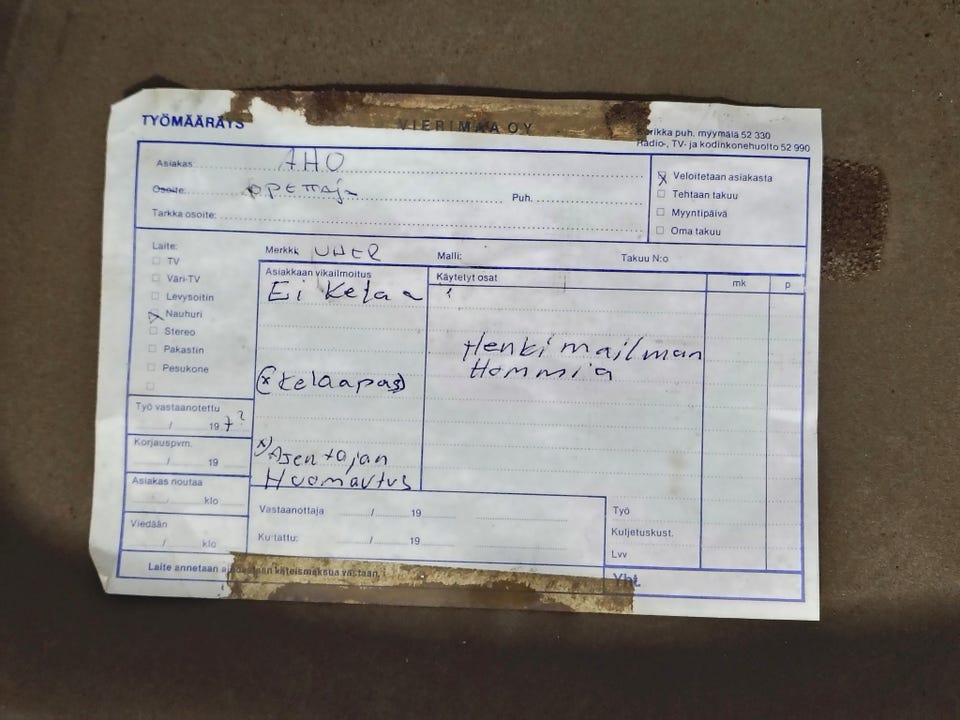 TYÖMÄÄRÄYS
VIERIMAA OY
puh. myymälä 52 330
Radio-, TV- ja kodinkonehuolto 52 990
Asiakas AHO
Osoite: OPETTAJA
Puh.
Tarkka osoite:
Veloitetaan asiakasta
Tehtaan takuu
Myyntipäivä
Oma takuu
Laite:
TV
Väri-TV
Levysoitin
Nauhuri
Stereo
Pakastin
Pesukone
Merkki: UHER
Malli:
Takuu N:o
Asiakkaan vikailmoitus
Ei Kelaa
(x Kelaapas)
x) Asentajan
Huomautus
Käytetyt osat
mk
p
Henkimailman
Hommia
Työ vastaanotettu
/ 19 7?
Korjauspvm.
/ 19
Asiakas noutaa
/ klo
Viedään
/ klo
Vastaanottaja / 19
Kuitattu: / 19
Työ
Kuljetuskust.
Lvv
Yht.
Laite annetaan käteismaksua vastaan.